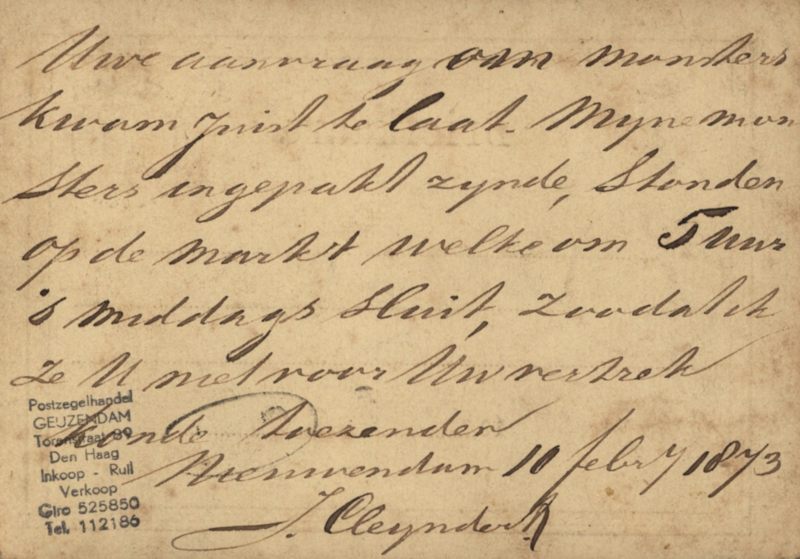 Uwe aanvraag om monsters
kwam juist te laat. Myne mon
sters ingepakt zynde, Stonden
op de markt welke om 5 uur
's middags sluit, zoodat ik
ze U niet voor Uw vertrek
konde toezenden
Nieuwendam 10 febry 1873
J. Cleyndert
Postzegelhandel
GEUZENDAM
Torenstraat 89
Den Haag
Inkoop - Ruil
Verkoop
Giro 525850
Tel. 112186